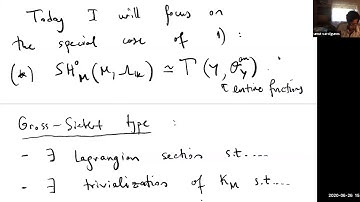 Today I will focus on
the special case of 1) :
(*) SH⁰_M(M, Λ_k) ≃ Γ(Y, O_Y^an) .
entire functions
Gross-Siebert type :
- ∃ Lagrangian section s.t....
- ∃ trivialization of K_M s.t....
2020-06-26 15